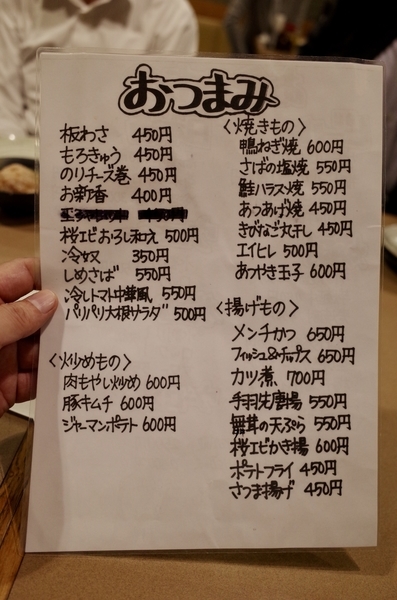 おつまみ
板わさ 450円
もろきゅう 450円
のりチーズ巻 450円
お新香 400円
桜エビおろし和え 500円
冷奴 350円
しめさば 550円
冷しトマト中華風 550円
パリパリ大根サラダ 500円
〈炒めもの〉
肉もやし炒め 600円
豚キムチ 600円
ジャーマンポテト 600円
〈焼きもの〉
鴨ねぎ焼 600円
さばの塩焼 550円
鮭ハラス焼 550円
あつあげ焼 450円
きびなご丸干し 450円
エイヒレ 500円
あつやき玉子 600円
〈揚げもの〉
メンチかつ 650円
フィッシュ&チップス 650円
カツ煮 700円
手羽先唐揚 550円
舞茸の天ぷら 550円
桜エビかき揚 600円
ポテトフライ 450円
さつま揚げ 450円